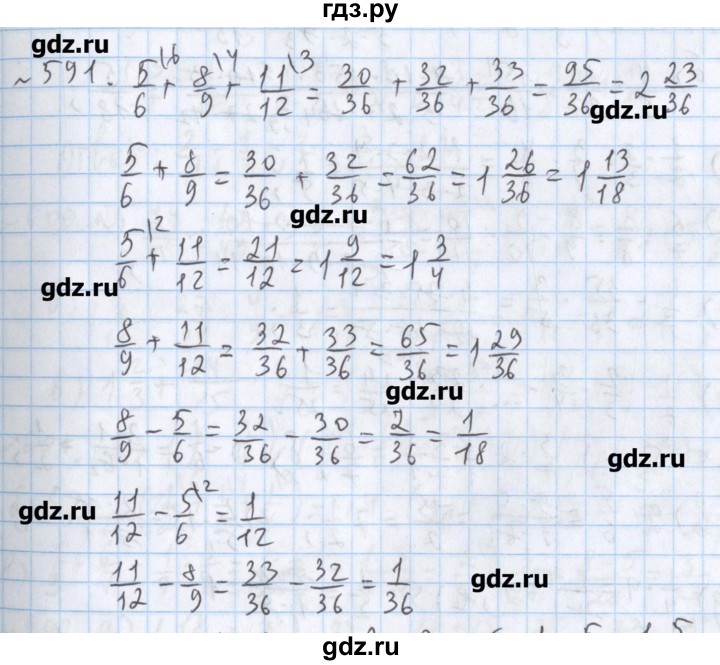 гдз.ру
gdz.ru
~591. 5/6\6 + 8/9\4 + 11/12\3 = 30/36 + 32/36 + 33/36 = 95/36 = 2 23/36
gdz.ru
5/6 + 8/9 = 30/36 + 32/36 = 62/36 = 1 26/36 = 1 13/18
gdz.ru
5/6\2 + 11/12 = 21/12 = 1 9/12 = 1 3/4
gdz.ru
8/9 + 11/12 = 32/36 + 33/36 = 65/36 = 1 29/36
gdz.ru
8/9 - 5/6 = 32/36 - 30/36 = 2/36 = 1/18
gdz.ru
gdz.ru
11/12 - 5/6\2 = 1/12
11/12 - 8/9 = 33/36 - 32/36 = 1/36
gdz.ru
gdz.ru